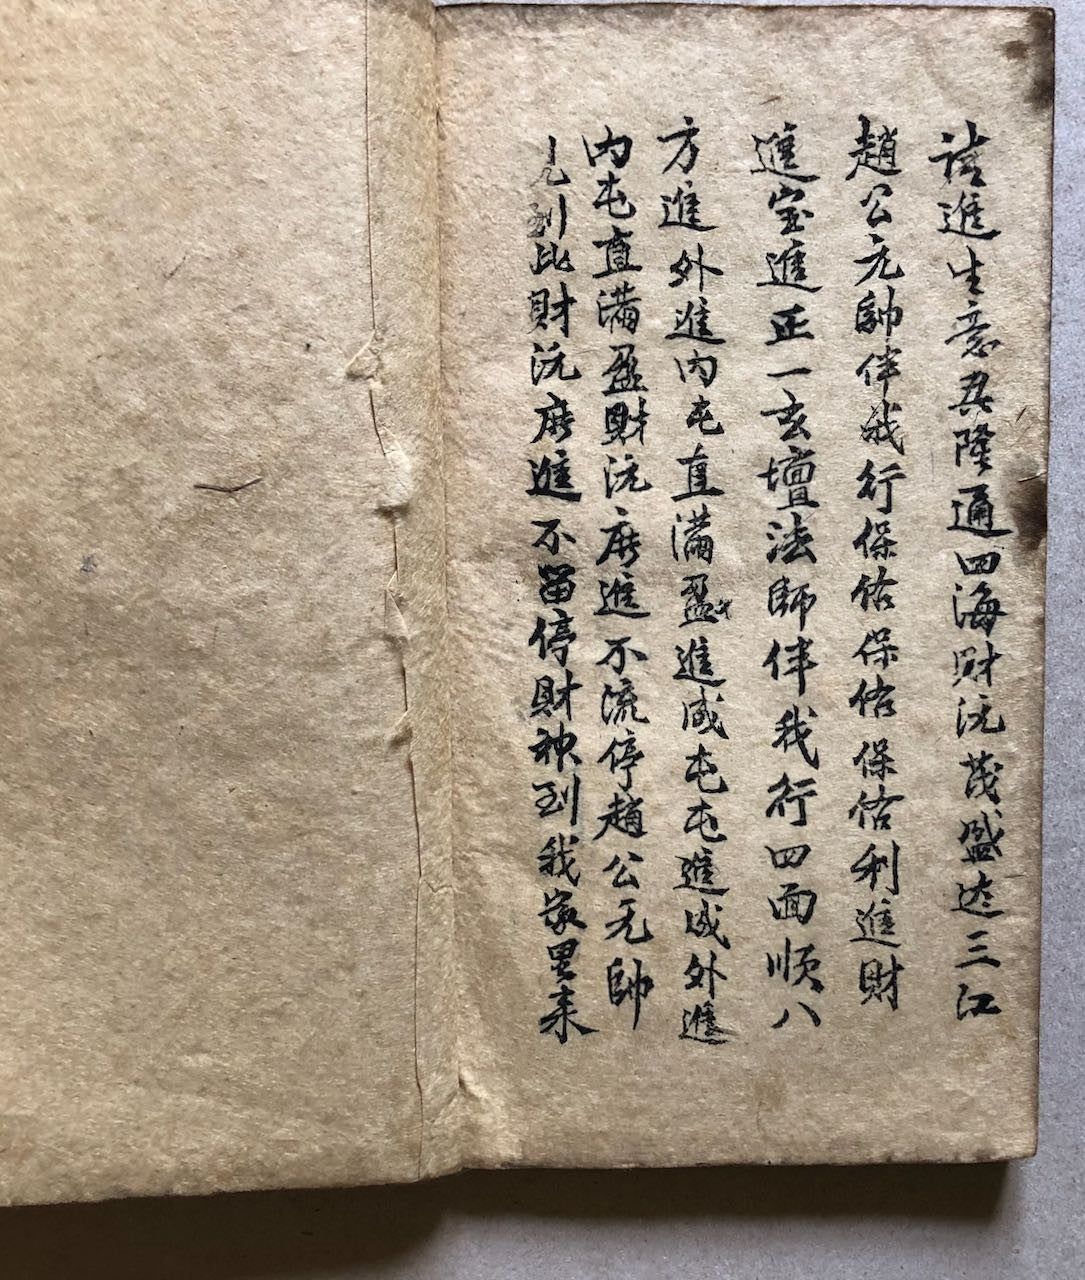 進生意兴隆通四海財沅茂盛达三江
趙公元帥伴我行保佑保佑保佑利進財
進宝進正一玄壇法師伴我行四面順八
方進外進内屯直满盈進成屯屯進成外進
内屯直满盈財沅庶進不流停趙公元帥
到比財沅庶進不留停財神到我家里来